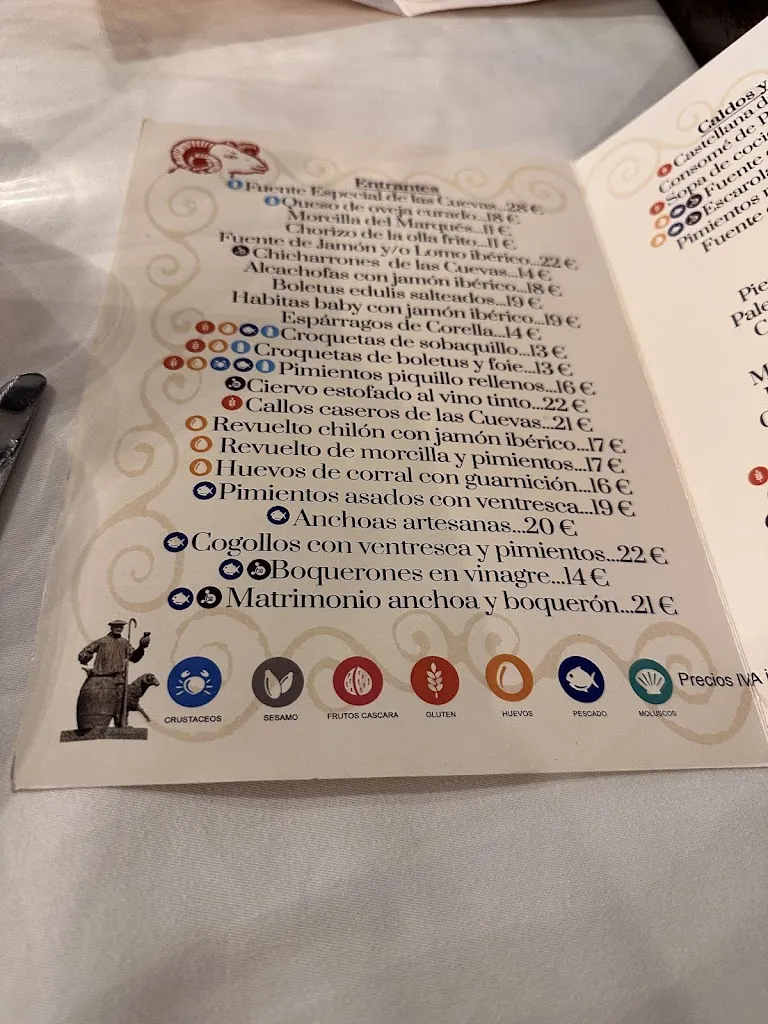 Entrantes
Fuente Especial de las Cuevas...28 €
Queso de oveja curado...18 €
Morcilla del Marqués...11 €
Chorizo de la olla frito...11 €
Fuente de Jamón y/o Lomo ibérico...22 €
Chicharrones de las Cuevas...14 €
Alcachofas con jamón ibérico...18 €
Boletus edulis salteados...19 €
Habitas baby con jamón ibérico...19 €
Espárragos de Corella...14 €
Croquetas de sobaquillo...13 €
Croquetas de boletus y foie...13 €
Pimientos piquillo rellenos...16 €
Ciervo estofado al vino tinto...22 €
Callos caseros de las Cuevas...21 €
Revuelto chilón con jamón ibérico...17 €
Revuelto de morcilla y pimientos...17 €
Huevos de corral con guarnición...16 €
Pimientos asados con ventresca...19 €
Anchoas artesanas...20 €
Cogollos con ventresca y pimientos...22 €
Boquerones en vinagre...14 €
Matrimonio anchoa y boquerón...21 €
CRUSTACEOS
SESAMO
FRUTOS CASCARA
GLUTEN
HUEVOS
PESCADO
MOLUSCOS
Precios IVA
Caldos y
Castellana d
Consomé de P
Sopa de coci
Fuente
Escarola
Pimientos
Fuente
Pie
Pale
C
M